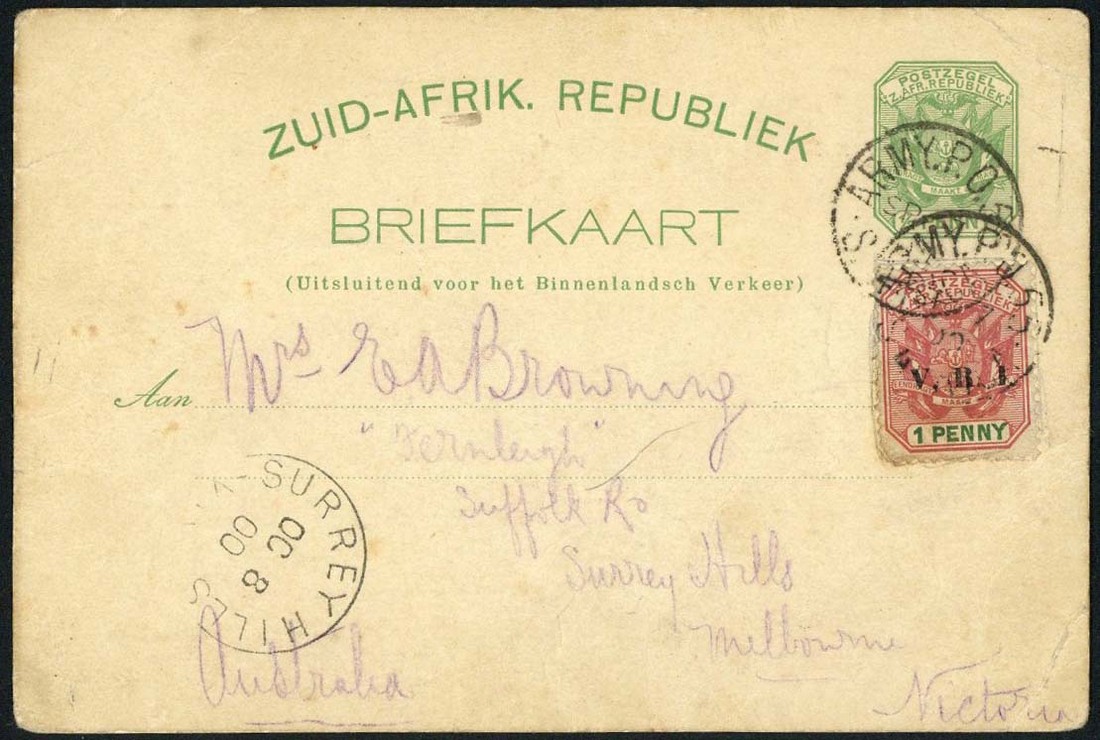 ZUID-AFRIK. REPUBLIEK
BRIEFKAART
(Uitsluitend voor het Binnenlandsch Verkeer)
POSTZEGEL
Z. AFR. REPUBLIEK
MAAKT
ARMY.P.O.
ARMY P.O. 55
POSTZEGEL
REPUBLIEK
V.R.I
MAAKT
1 PENNY
Aan Mrs E A Browning
"Fernleigh"
Suffolk Rd
Surrey Hills
Melbourne
Victoria
Australia
SURREY HILLS
OC 8
00